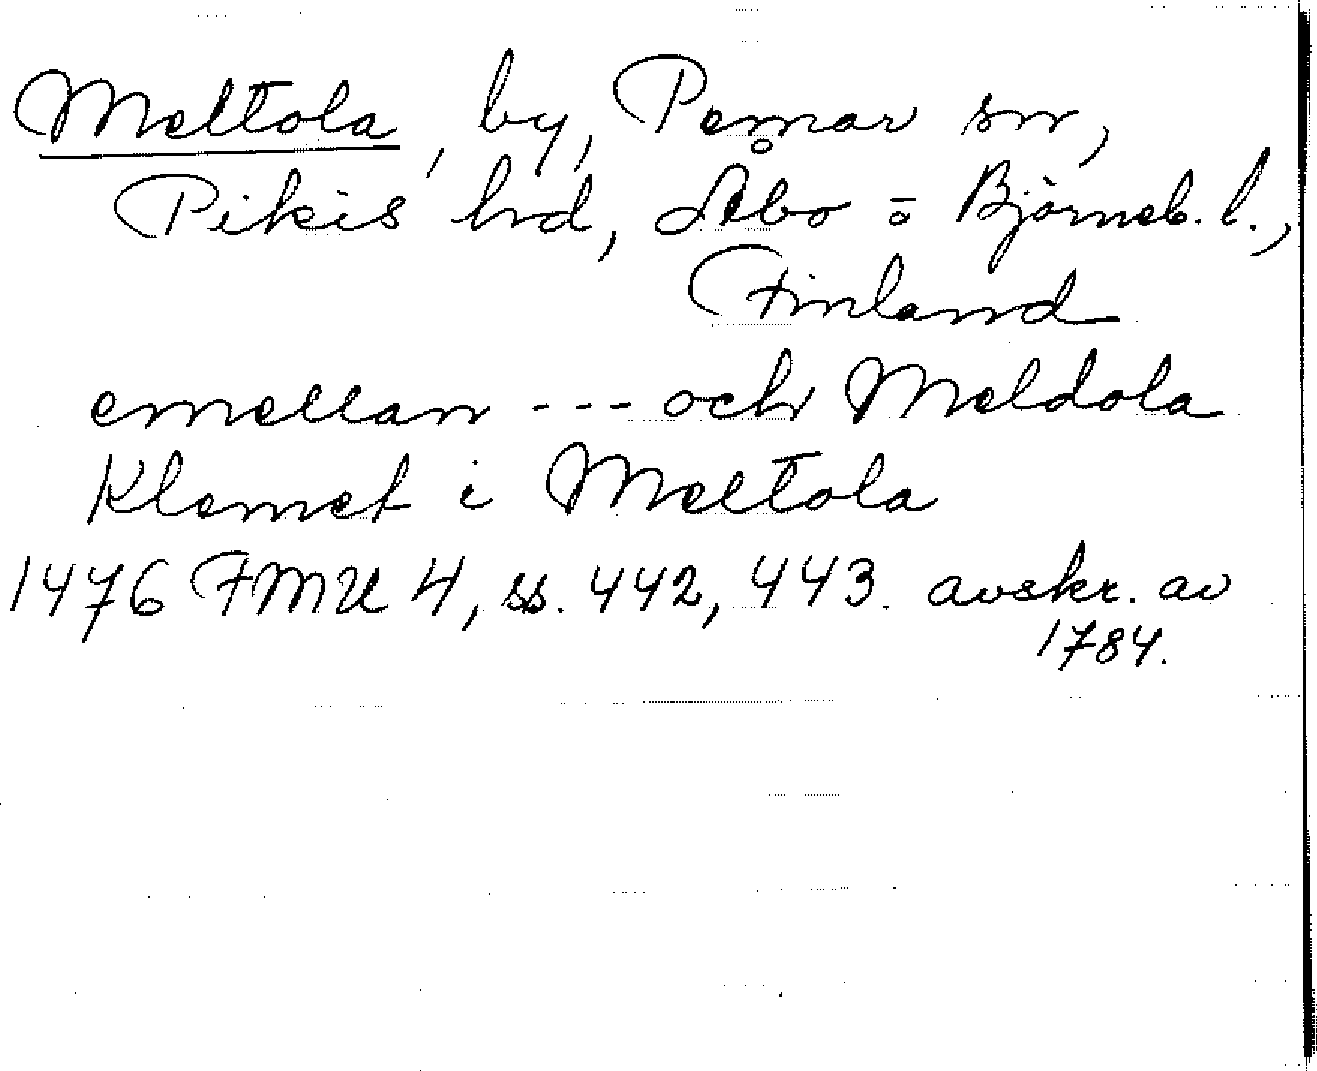 Meltola, by, Pemar sn,
Pikis hd, Åbo o Björneb. l.,
Finland
emellan --- och Meldola
Klemet i Meltola
1476 FMU 4, ss. 442, 443. avskr. av
1784.